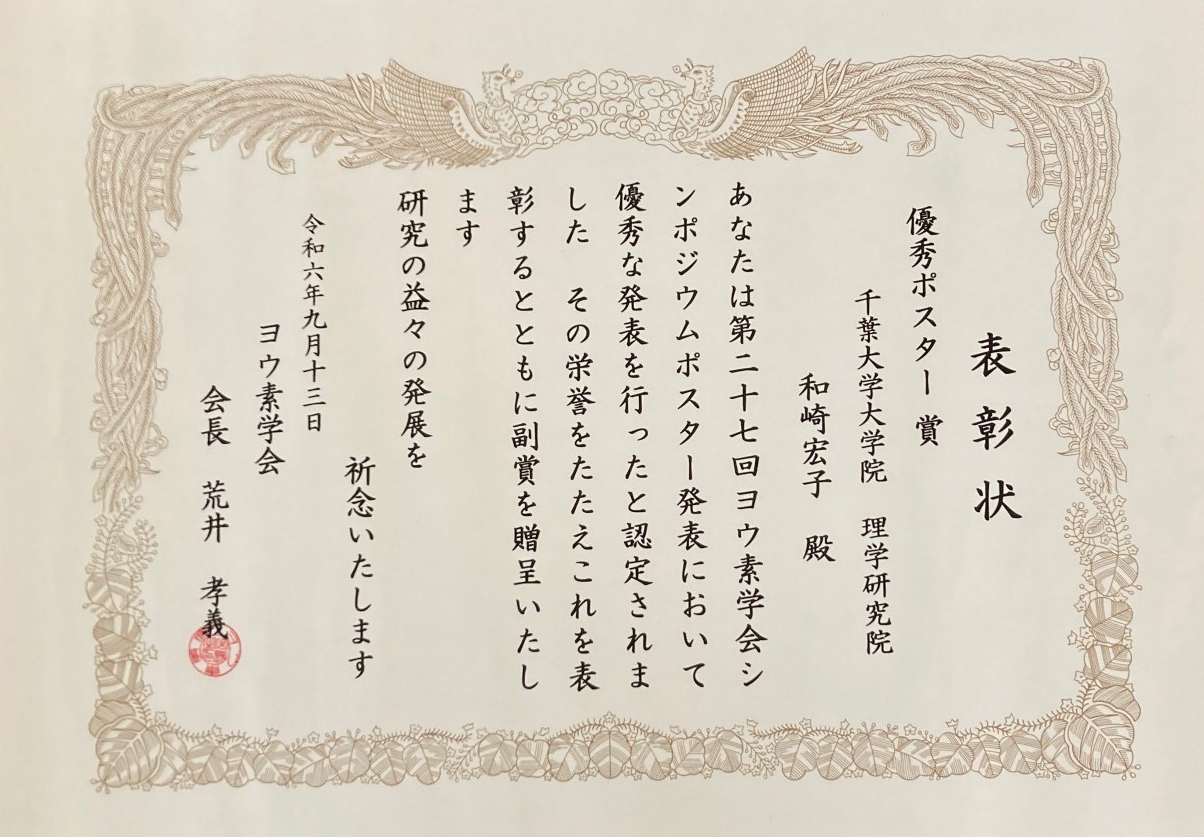 表彰状
優秀ポスター賞
千葉大学大学院 理学研究院
和崎宏子 殿
あなたは第二十七回ヨウ素学会シ
ンポジウムポスター発表において
優秀な発表を行ったと認定されま
した その栄誉をたたえこれを表
彰するとともに副賞を贈呈いたし
ます
研究の益々の発展を
祈念いたします
令和六年九月十三日
ヨウ素学会
会長 荒井 孝義